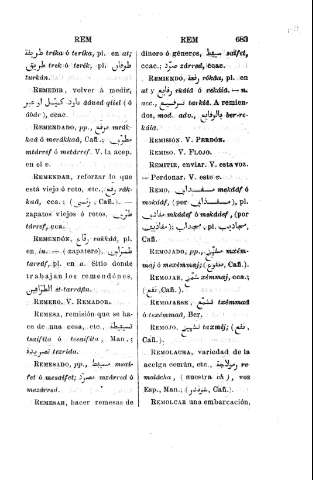 REM
REM
683
طريقة trika ó terika, pl. en at;
طريق trek ó terik, pl. طرقان
turkán.
REMEDIR, volver á medir,
عاود كيّل او عبر ááued quiel (ó
ââbr), ccac.
REMENDADO, pp., مرقع merák-
kaâ ó merákkaâ, Cañ.; مطرّف
métarref ó metárref. V. la acep.
en el c.
REMENDAR, reforzar lo que
está viejo ó roto, etc., رقع rák-
kaâ, cca.; (رقس, Cañ.). —
zapatos viejos ó rotos, طرّف
tárref, cca.
REMENDÓN, رقاع rakkaâ, pl.
en in. — (zapatero), طراف
tarráf, pl. en a. Sitio donde
trabajan los remendones,
الطرافين et-tarráfin.
REMERO. V. REMADOR.
REMESA, remisión que se ha-
ce de una cosa, etc., تصيفيط
tsaífita ó tsenifita, Man.;
تصريدة tezrida.
REMESADO, pp., مصيفط musai-
fet ó mesáifet; مصرّد mzárred ó
mezárrad.
REMESAR, hacer remesas de
dinero ó géneros, صيفط saífet,
ccac.; صرّد zárred, ccac.
REMIENDO, رقعة rókâa, pl. en
at y رقايع erkáiâ ó rekáiâ. — n.
acc., ترقيع tarkiâ. A remien-
dos, mod. adv., بالرقايع ber-re-
káiâ.
REMISÓN. V. PERDÓN.
REMISO. V. FLOJO.
REMITIR, enviar. V. esta voz.
— Perdonar. V. este v.
REMO, مقداف mokdáf ó
makdáf, (por مقداف), pl.
مقاديف mkádef ó mokádef, (por
مقاديف); مجداف, pl. مجاديب,
Cañ.
REMOJADO, pp., مشمّخ mxém-
maj ó mexémmaj; (منقوع, Cañ.).
REMOJAR, شمّخ xémmaj, cca.;
(نقع, Cañ.).
REMOJARSE, تشمّخ txémmað
ó texémmað, Ber.
REMOJO, تشميخ taxmíj; (نقع,
Cañ.).
REMOLACHA, variedad de la
acelga común, etc., رمولاجة re
molácha, (nuestra ch), voz
Esp., Man.; (شوندر, Cañ.).
REMOLCAR una embarcación,